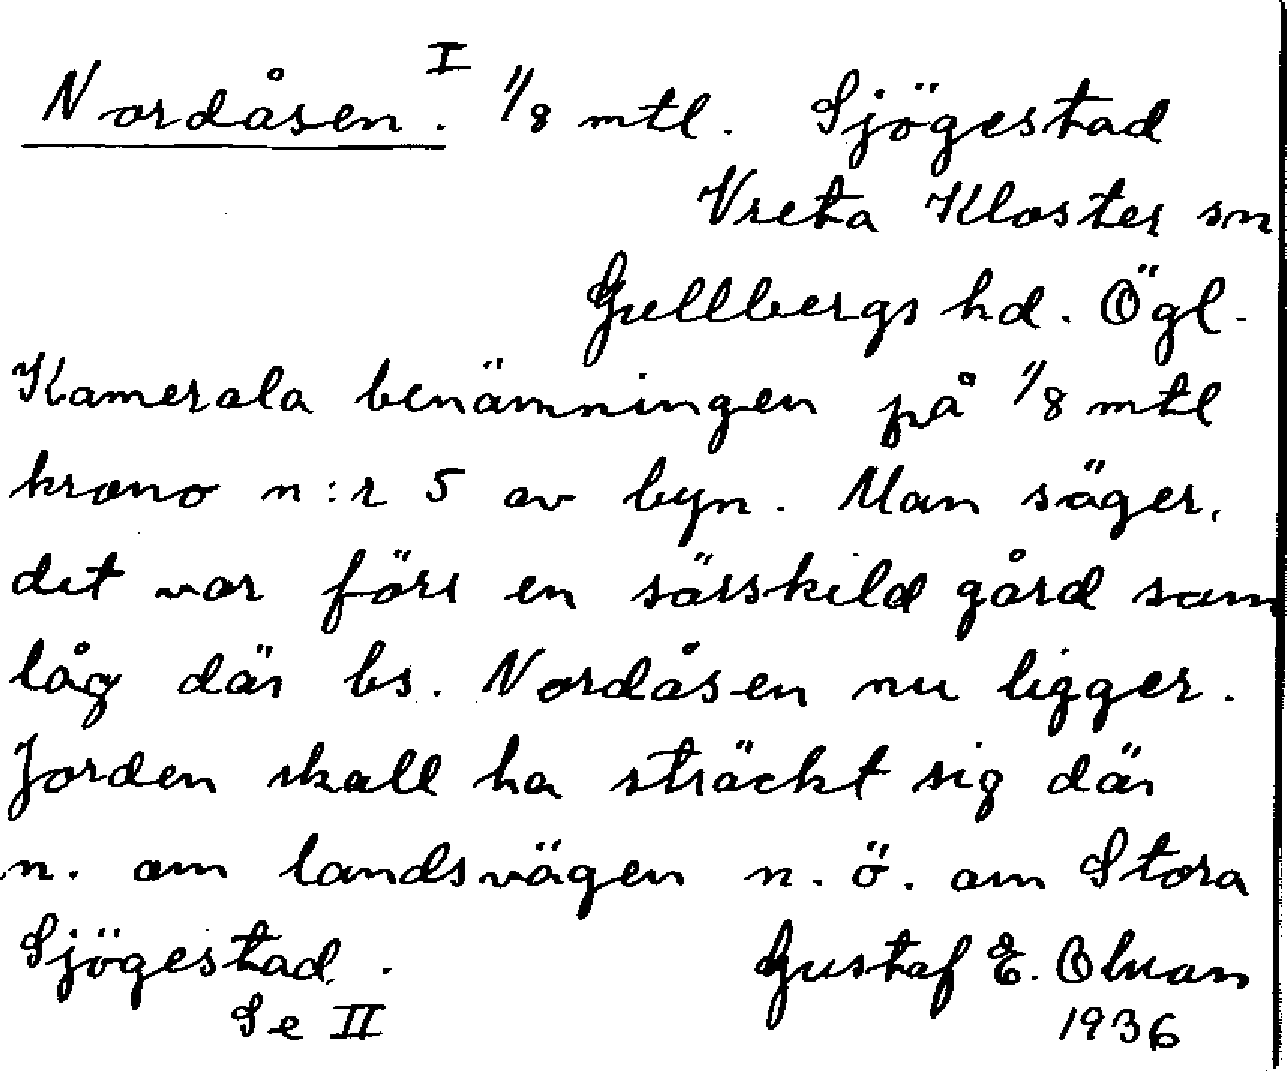 Nordåsen. I 1/8 mtl. Sjögestad
Vreta Kloster sn
Gullbergs hd. Ögl.
Kamerala benämningen på 1/8 mtl
krono n:r 5 av byn. Man säger,
det var förr en särskild gård som
låg där bs. Nordåsen nu ligger.
Jorden skall ha sträckt sig där
n. om landsvägen n. ö. om Stora
Sjögestad.
Gustaf E. Olsson
Se II
1936